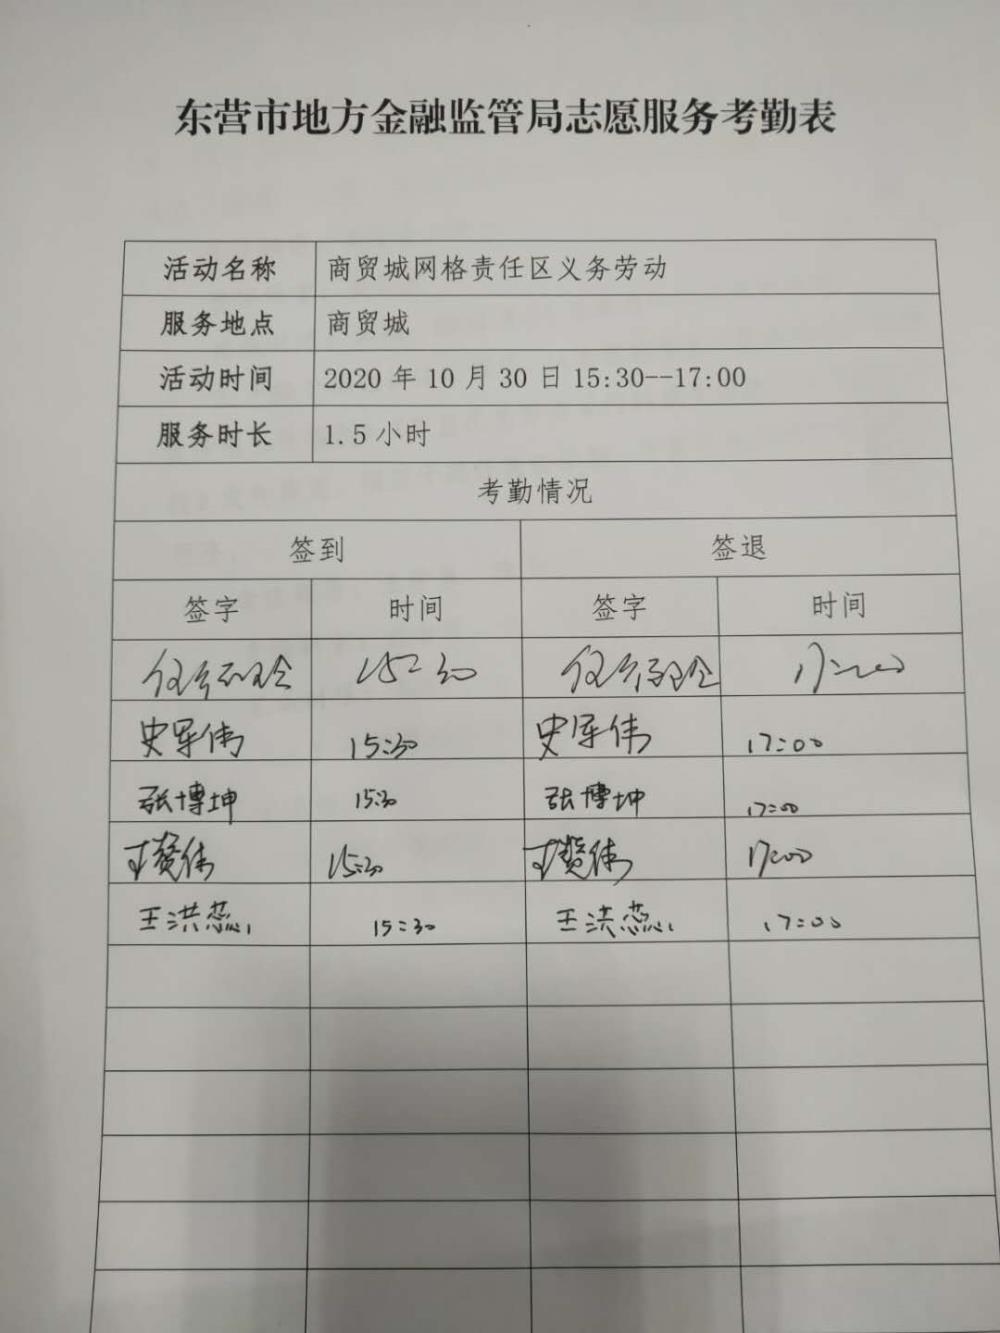 东营市地方金融监管局志愿服务考勤表
活动名称 商贸城网格责任区义务劳动
服务地点 商贸城
活动时间 2020年10月30日15:30--17:00
服务时长 1.5小时
考勤情况
签到 签退
签字 时间 签字 时间
15:30 17:00
史军伟 15:30 史军伟 17:00
张博坤 15:30 张博坤 17:00
15:30 17:00
王洪蕊 15:30 王洪蕊 17:00